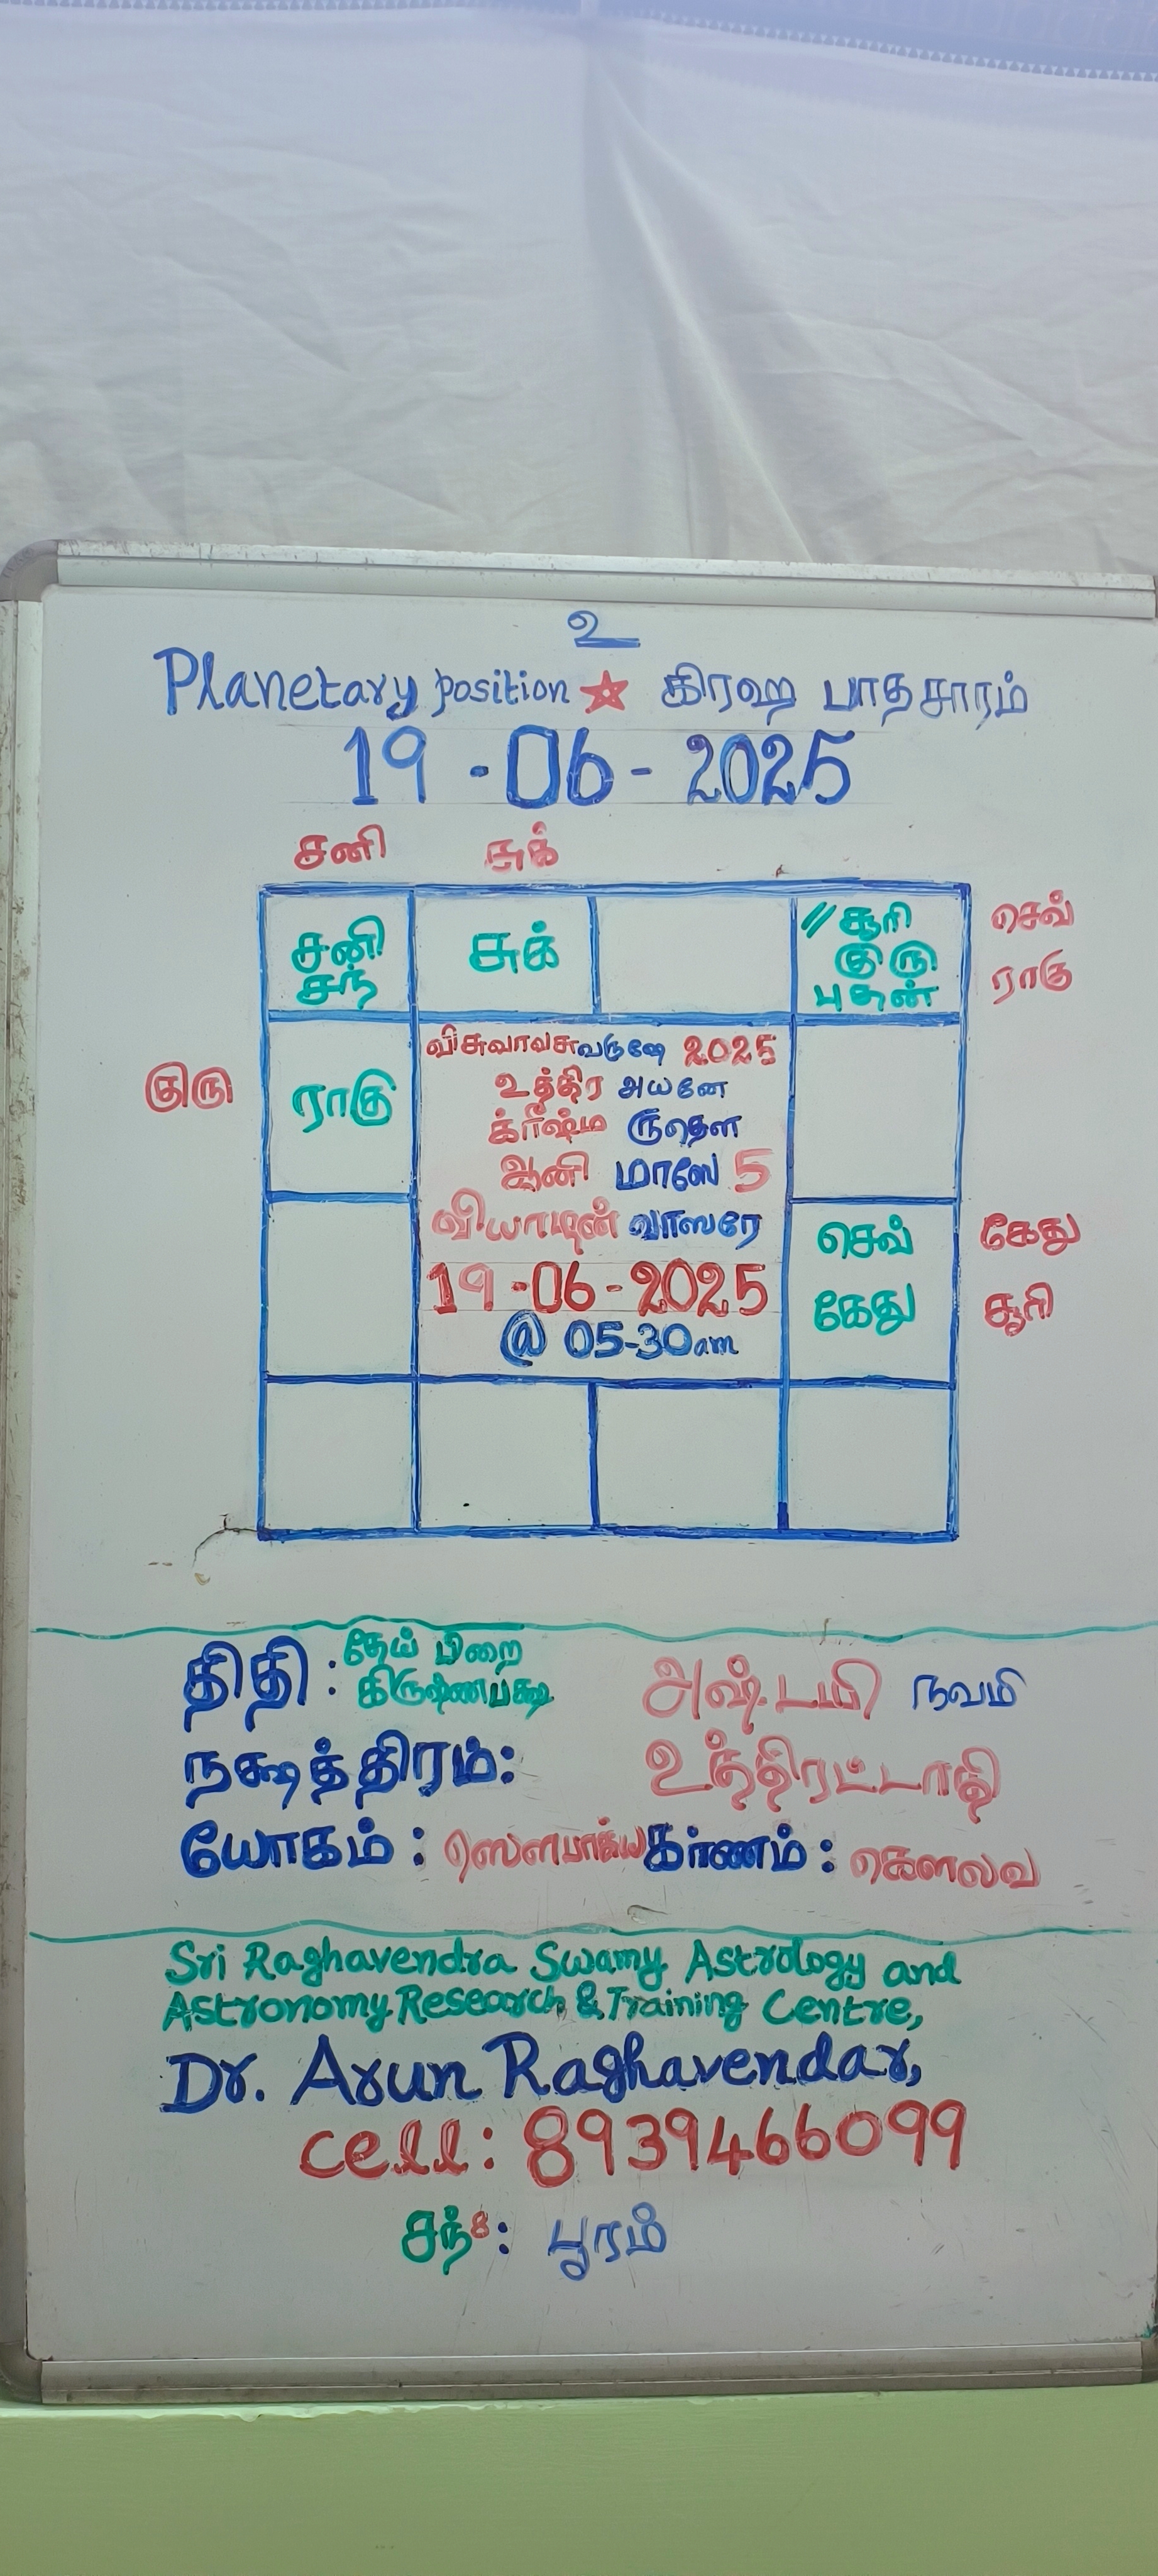 உ
Planetary position ☆ கிரஹ பாதசாரம்
19-06-2025
சனி சுக்
சனி சுக் // சூரி செவ்
சந் குரு ராகு
புதன்
விசுவாவசுவருஷே 2025
உத்திர அயனே
குரு ராகு க்ரீஷ்ம ருதௌ
ஆனி மாஸே 5
வியாழன் வாஸரே செவ் கேது
19-06-2025 கேது சூரி
@ 05-30am
திதி: தேய் பிறை அஷ்டமி நவமி
கிருஷ்ணபக்ஷ
நக்ஷத்திரம்: உத்திரட்டாதி
யோகம்: ஸௌபாக்ய கர்ணம்: கௌலவ
Sri Raghavendra Swamy Astrology and
Astronomy Research & Training Centre,
Dr. Arun Raghavendar,
cell: 8939466099
சந்8: பூரம்